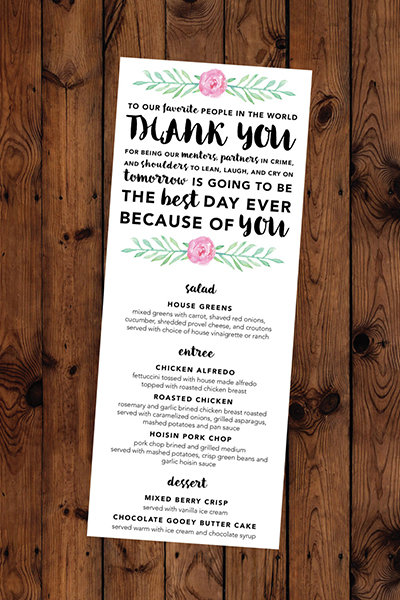 TO OUR favorite PEOPLE IN THE WORLD
THANK YOU
FOR BEING OUR mentors, partners IN CRIME,
AND shoulders TO LEAN, LAUGH, AND CRY ON
tomorrow IS GOING TO BE
THE best DAY EVER
BECAUSE OF YOU
salad
HOUSE GREENS
mixed greens with carrot, shaved red onions,
cucumber, shredded provel cheese, and croutons
served with choice of house vinaigrette or ranch
entree
CHICKEN ALFREDO
fettuccini tossed with house made alfredo
topped with roasted chicken breast
ROASTED CHICKEN
rosemary and garlic brined chicken breast roasted
served with caramelized onions, grilled asparagus,
mashed potatoes and pan sauce
HOISIN PORK CHOP
pork chop brined and grilled medium
served with mashed potatoes, crisp green beans and
garlic hoisin sauce
dessert
MIXED BERRY CRISP
served with vanilla ice cream
CHOCOLATE GOOEY BUTTER CAKE
served warm with ice cream and chocolate syrup